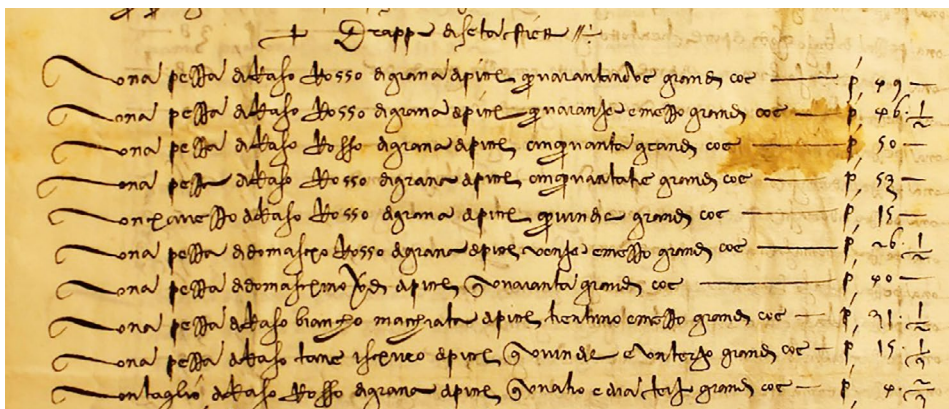 + Drappi di seta
una pezza di Raso Rosso di grana di picch quarantadue grandi coe — p. 42 —
una pezza di Raso Rosso di grana di picch quarantasei e mezzo grandi coe — p. 46 1/2
una pezza di Raso Rosso di grana di picch cinquanta grandi coe — p. 50 —
una pezza di Raso Rosso di grana di picch cinquantatre grandi coe — p. 53 —
un cavezzo di Raso Rosso di grana di picch quindeci grandi coe — p. 15 —
una pezza di domascho Rosso di grana di picch ventisei e mezzo grandi coe — p. 26 1/2
una pezza di domaschino di picch quaranta grandi coe — p. 40 —
una pezza di Raso biancho macchiata di picch trentuno e mezzo grandi coe — p. 31 1/2
una pezza di Raso tane iscuro di picch quindeci e un terzo grandi coe — p. 15 1/3
un taglio di Raso Rosso di grana di picch quatro e dui terzi grandi coe — p. 4 2/3